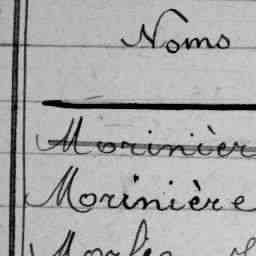 Noms
Morinièr
Morinière